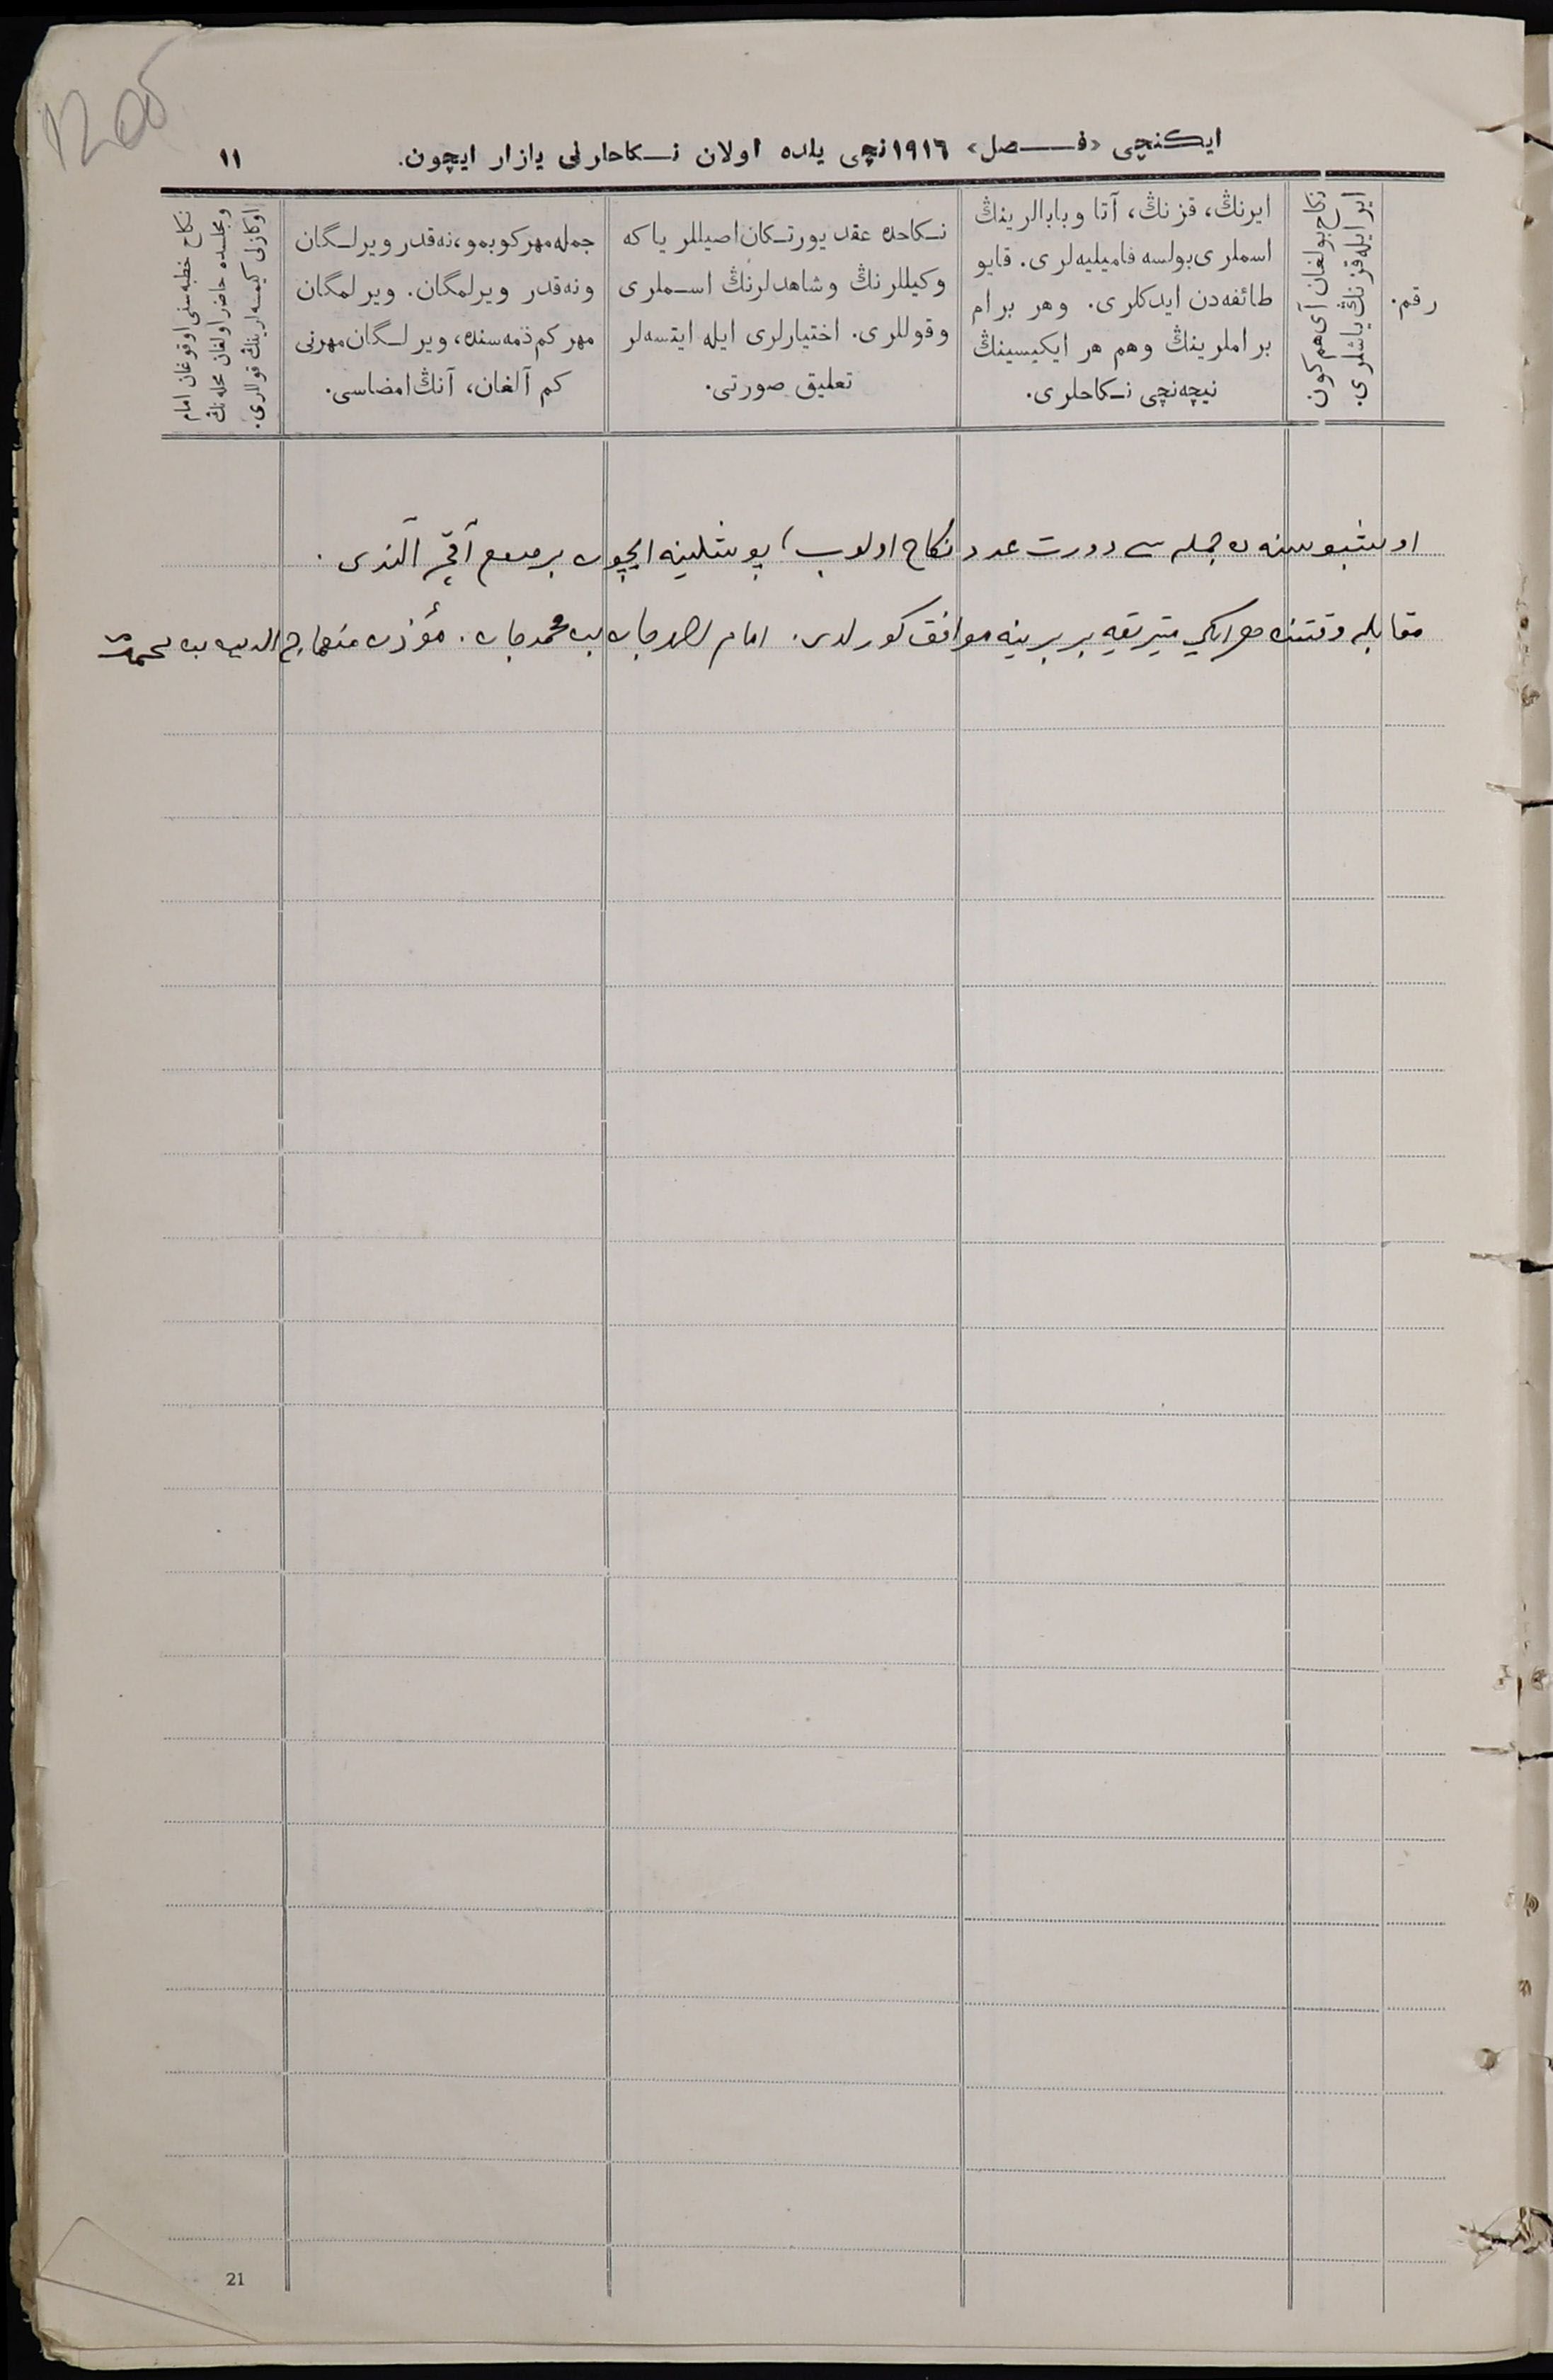 12 об
ایكنچی «فـصل» ١٩١٦نچی یلده اولان نـكاحلرنی یازار ایچون.
١١
رقم.
ایر ایله قزنڭ یاشلری.
نكاح بولغان آی هم كون
ایرنڭ، قزنڭ، آتا و بابالرینڭ
اسملری بولسه فامیلیه‌لری. قایو
طائفه‌دن ایدكلری. وهر برام
براملرینڭ وهم هر ایكیسینڭ
نیچه‌نچی نـكاحلری.
نـكاحده عقد یورتـكان اصیللر یا كه
وكیللرنڭ وشاهدلرنڭ اسـملری
وقوللری. اختیارلری ایله ایتسه‌لر
تعلیق صورتی.
جمله مهر كوبمو، نه‌قدر ویرلـگان
ونه‌قدر ویرلمگان. ویرلمگان
مهر كم ذمه‌سنده، ویرلـگان مهرنی
كم آلغان، آنڭ امضاسی.
نكاح خطبه‌سنی اوقوغان امام
ومجلسده حاضر اولغان محله‌نڭ
اوكازنی كیمسه‌لرینڭ قوللری.
اوشبو سنه ده جمله سی دورت عدد نكاح اولوب، پوشلینه ایچون بر صوم آقچه آلندی.
مقابله وقتنده هر ایكی میتریقه بر برینه موافق كورلدی. امام بن محمدجان. مؤذن منهاج الدین بن
21